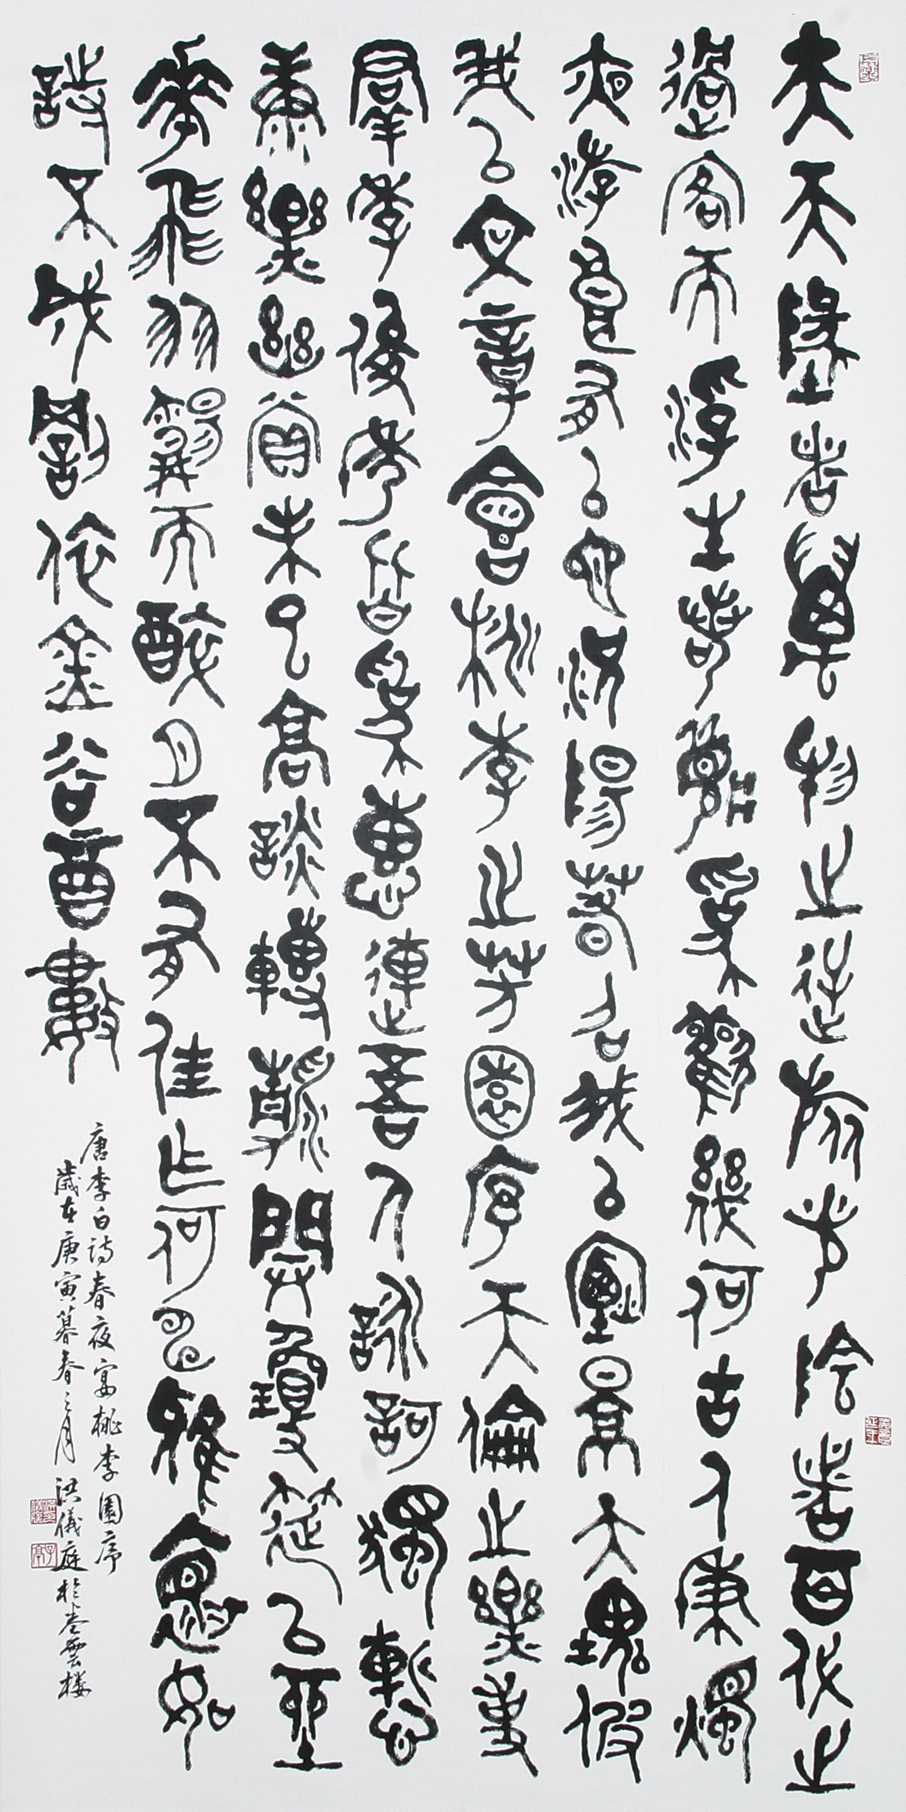 夫天地者萬物之逆旅光陰者百代之
過客而浮生若夢爲歡幾何古人秉燭
夜游良有以也況陽春召我以煙景大塊假
我以文章會桃李之芳園序天倫之樂事
羣季俊秀皆爲惠連吾人詠歌獨慚
康樂幽賞未已高談轉清開瓊筵以坐
花飛羽觴而醉月不有佳作何伸雅懷如
詩不成罰依金谷酒數
唐李白詩春夜宴桃李園序
歲在庚寅暮春三月洪儀庭於卷雲楼